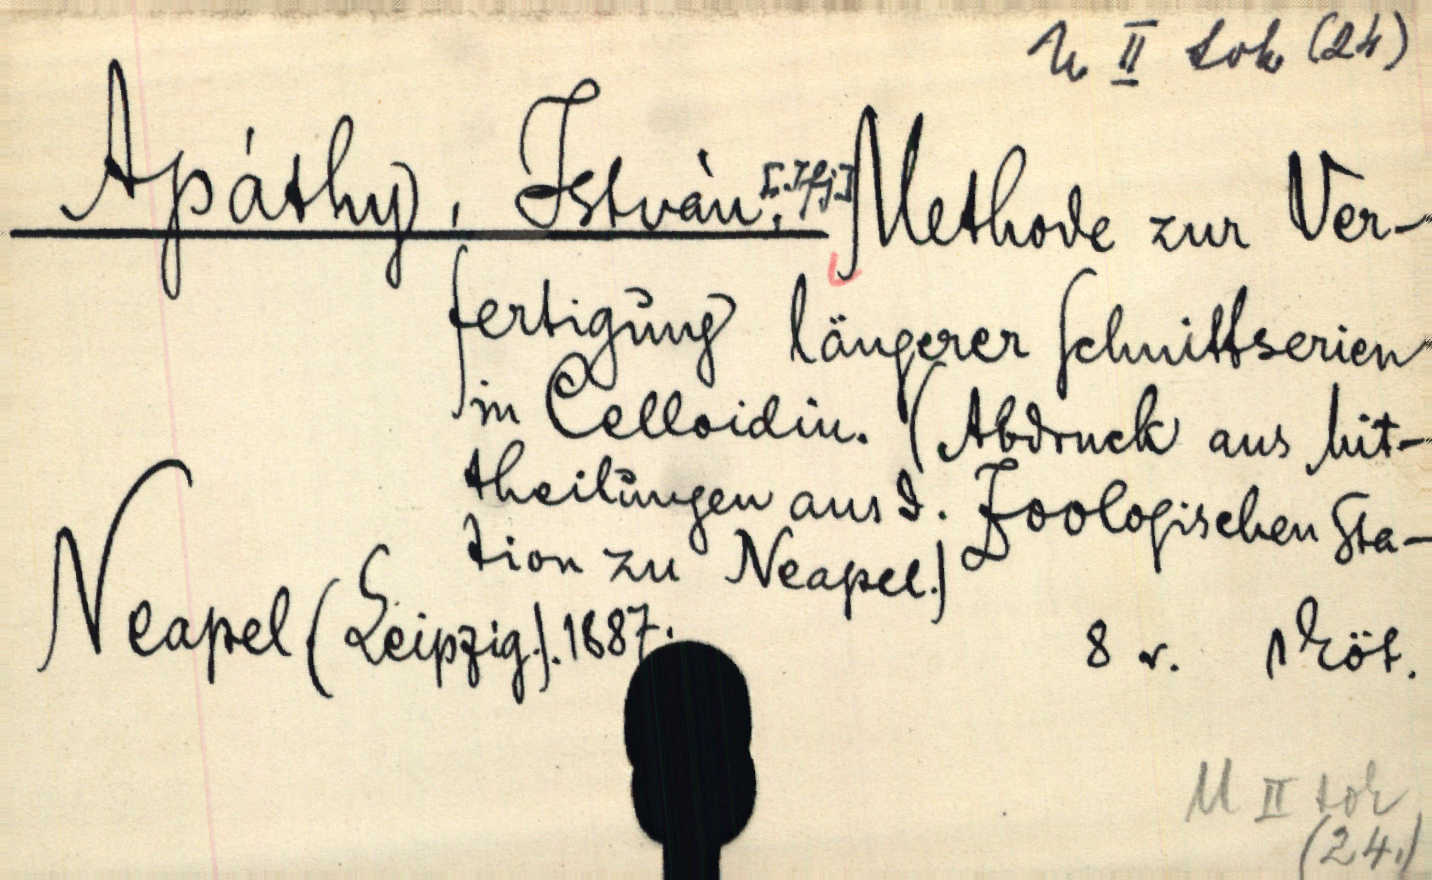 U II tok (24)
Apáthy, István, [Ifj.] Methode zur Ver-
fertigung längerer Schnittserien
in Celloidin. (Abdruck aus Mit-
theilungen aus d. Zoologischen Sta-
tion zu Neapel.)
Neapel (Leipzig). 1887. 8 r. 1 köt.
M II tok
(24.)